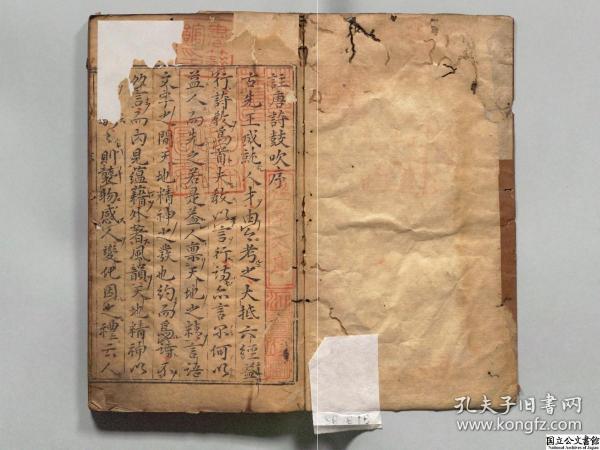 註唐詩鼓吹序
古先王成就人才由 考之大抵六經益
行詩教為首夫教以言行詩亦言不何以
益人而先之若是益人稟天地之精言語
文字之間天地精神之發也約而為詩不
言而內見蘊藉外著風韻天地精神以
則襲物感人變化因之禮云人
孔夫子旧书网
www.kongfz.com
国立公文書館
National Archives of Japan